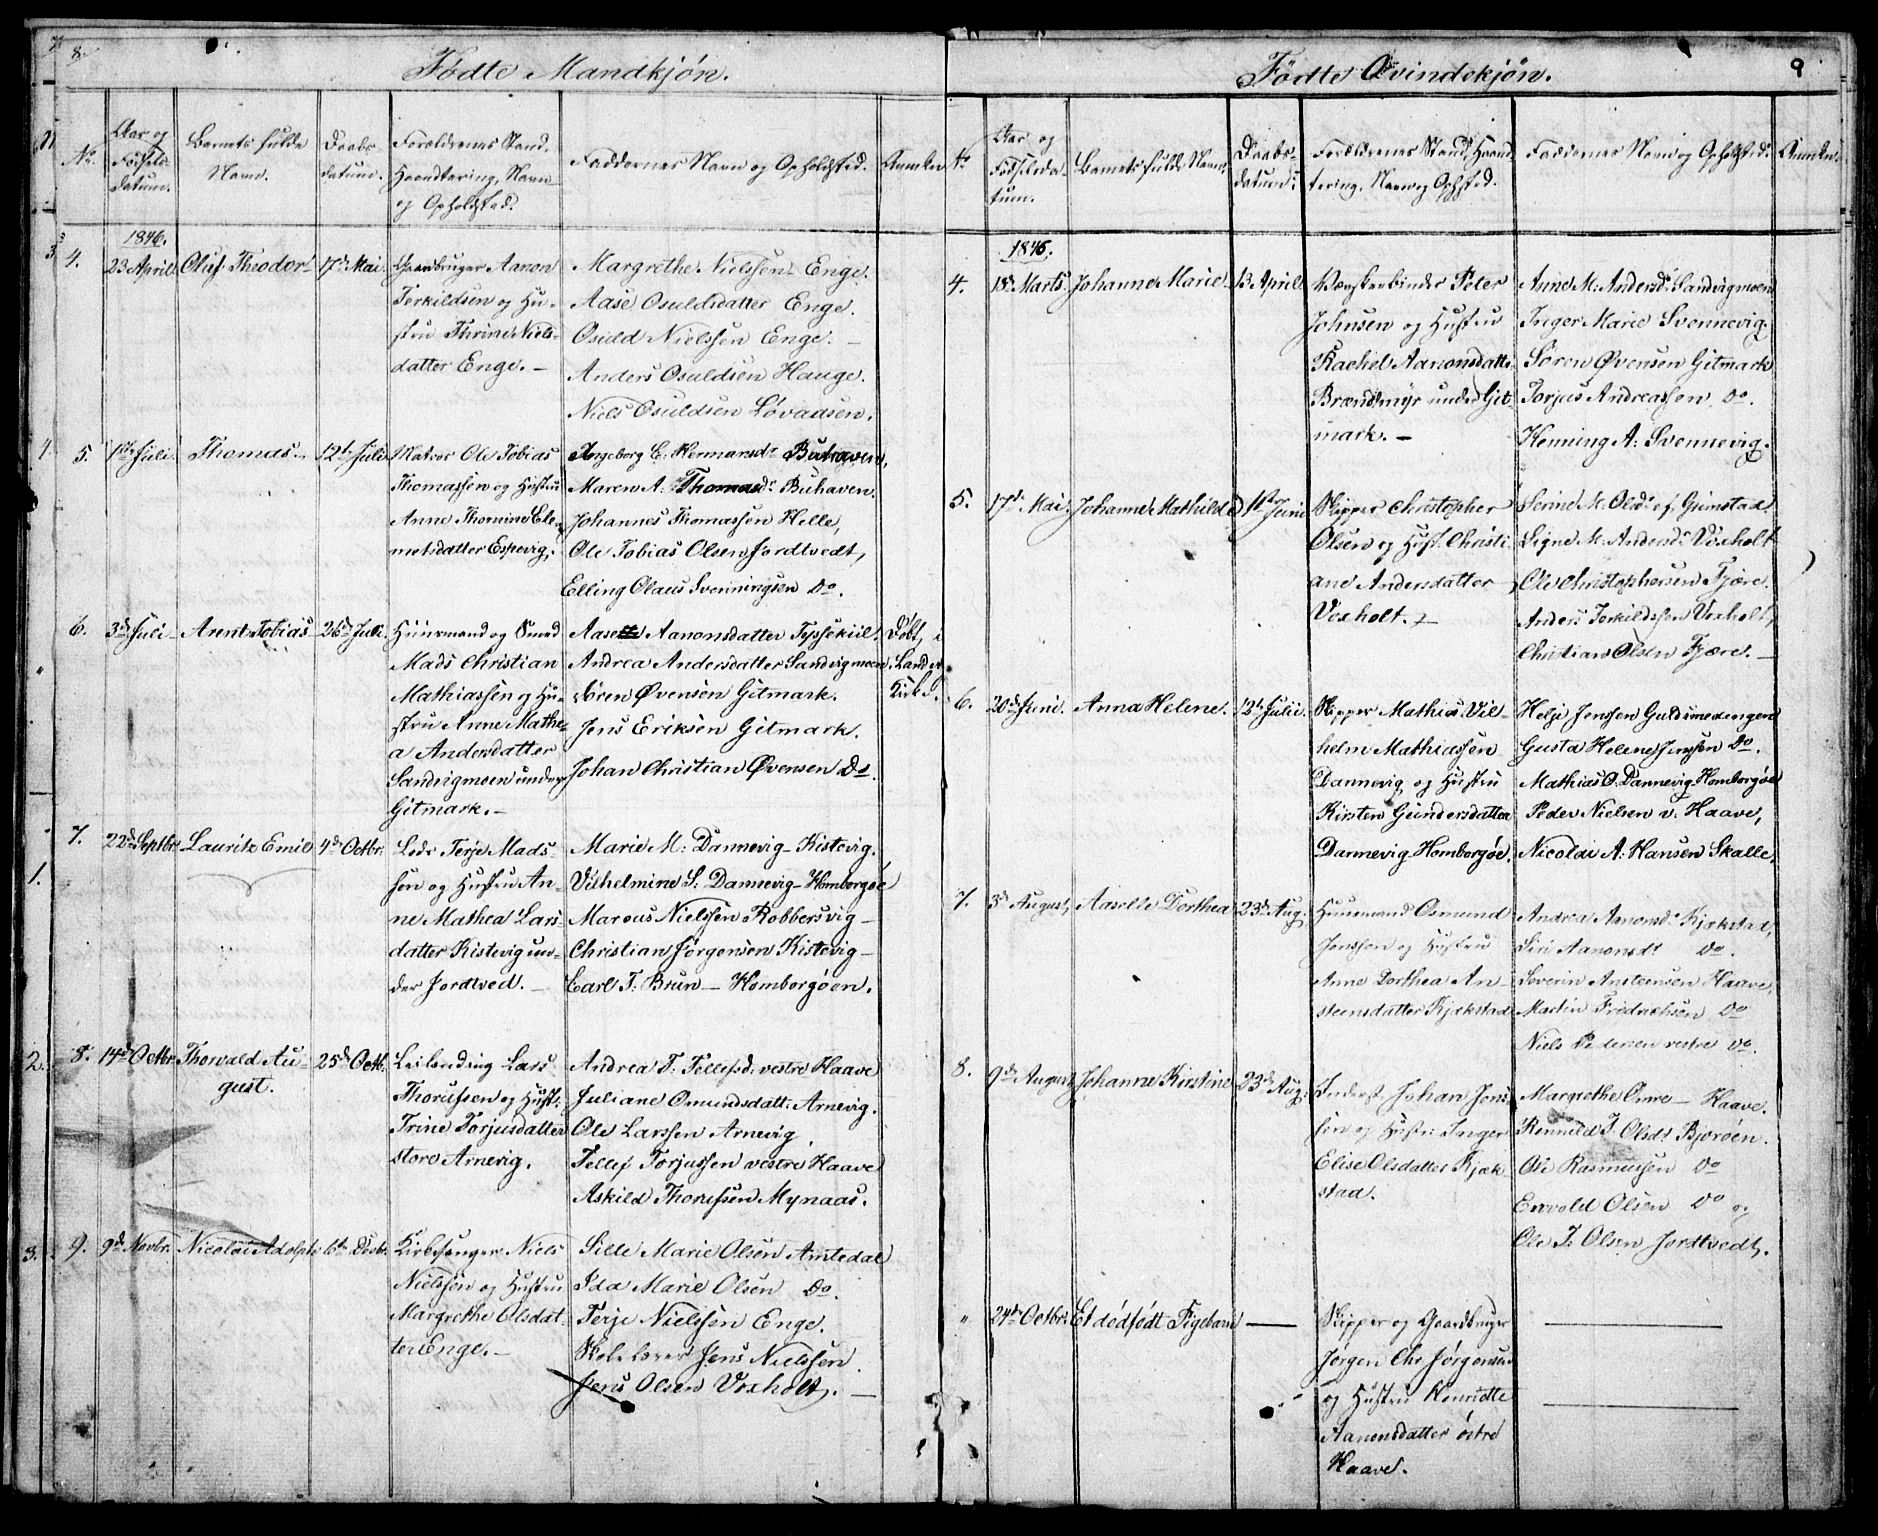 8.
Fødte Mandkjøn.
No.
Aar og
Fødsels
datum.
Barnets fulde
Navn.
Daabs-
datum.
Forældrenes Stand,
Haandtering, Navn
og Opholdsted.
Faddernes Navn og Opholdsted.
Anmærkn.
1846.
4.
23 April.
Oluf Theodor
17de Mai.
Gaardbruger Aanon
Terkildsen og Hu-
stru Thrine Niels-
datter Enge. –
Margrethe Nielssen Enge.
Aase Osuldsdatter Enge.
Osuld Nielssen Enge. –
Anders Osuldsen Hauge.
Niels Osuldsen Løvaasen.
5.
1ste Juli.
Thomas.
12te Juli
Matros Ole Tobias
Thomassen og Hustru
Anne Thomine Ele-
metsdatter Espevig.
Ingeborg E. Hermansdr Buhaven,
Maren A: Thomasdr Buhaven.
Johannes Thomassen Helle,
Ole Tobias Olsen Jordtvedt,
Elling Olaus Svenningsen Do.
6.
3de Juli
Arent Tobias
26de Juli.
Huusmand og Smed
Mads Christian
Mathiassen og Hu-
stru Anne Mathe-
a Andersdatter
Sandvigmoen under
Gitmark. –
Aase Aanonsdatter Tyssekiil.
Andrea Andersdatter Sandvigmoen.
Søren Øvensen Gitmark.
Jens Eriksen Gitmark.
Johan Christian Øvensen Do.
Døbt i
Landvi
Kirke.
7.
22de Septbr.
Lauritz Emil
4de Octbr.
Lods Terje Mads-
sen og Hustru An-
ne Mathea Lars-
datter Kistevig un-
der Jordtved. –
Marie M: Dannevig – Kistevig.
Vilhelmine S: Dannevig – Homborgøe
Marcus Nielssen Robbersvig –
Christian Jørgensen Kistevig –
Carl T: Brun – Homborgøen.
8.
14de Octbr.
Thorvald Au-
gust.
25de Octb.
Leilending Lars
Thorufsen og Hust:
Trine Torjusdatter
store Arnevig.
Andrea T. Tellefsd: vestre Haave
Juliane Omundsdatt: Arnevig.
Ole Larssen Arnevig.
Tellef Torjussen vestre Haave
Askild Thorufsen Mynaas.
9.
9de Novbr.
Nicolai Adolph
6te Decbr.
Kirkesanger Niels
Nielssen og Hustru
Margrethe Olsdat-
ter Enge. –
Sille Marie Olsen Amtedal
Ida Marie Olsen Do.
Terje Nielssen Enge.
Skolelærer Jens Nielssen
Jens Olsen Voxholt. –
Fødte Qvindekjön.
9
No
Aar og
Fødselsda-
tum.
Barnets fulde Navn.
Daabs-
datum.
Forældrenes Stand, Haand-
tering, Navn og Ophsted.
Faddernes Navn og Opholdsted.
Anmkn.
1846.
4.
18de Marts
Johanne Marie
13 April
Peter
Johnsen og Hustru
Rachel Aanonsdatter
Brændsmyr under Git-
mark. –
Anne M: Andersdr Sandvigmoen
Inger Marie Svennevig.
Søren Øvensen Gitmark
Torjus Andreassen Do.
Heming A: Svennevig.
5.
17de Mai.
Johanne Mathilde
1ste Juni
Skipper Christopher
Olsen og Hust. Christi-
ane Andersdatter
Voxholt. –
M. Olsdr af Grimstad.
Signe M. Andersdr Voxholt
Ole Christophersen Fjære.
Anders Terkildssen Voxholt,
Christian Olsen Fjære. –
6.
20de Juni.
Anna Helene.
12te Julii.
Skipper Mathias Vil-
helm Mathiassen
Dannevig og Hustru
Kirsten Gundersdatter
Dannevig Homborgøe.
Helje Jenssen Guldsmedengen
Gusta Helene Jenssen Do.
Mathias O. Dannevig Homborgøe
Peder Nielsen v. Haave,
Nicolai A: Hansen Skalle.
7.
3de August,
Aaselle Dorthea
23de Aug.
Huusmand Osmund
Jenssen og Hustru
Anne Dorthea An-
steensdatter Kjækstad
Andrea Aanonsdr Kjækstad,
Siri Aanonsdr Do.
Severin Ansteensen Haave,
Martin Fredrichsen Do
Niels Pedersen vestre Do.
8.
9de August
Johanne Kirstine
23de Aug.
Inderst Johan Jens-
sen og Hustr: Inger
Elise Olsdatter Kjæk-
stad.
Margrethe Omre – Haave.
Rennild J. Olsdr Bjorøen.
Ole Rasmussen Do
Envold Olsen Do og
Ole J. Olsen Jordtvedt.
"
24de Octbr.
Et dødfødt Pigebarn
Skipper og Gaardbruger
Jørgen Chr Jørgensen
og Hustru Henriette
Aanonsdatter østre
Haave.